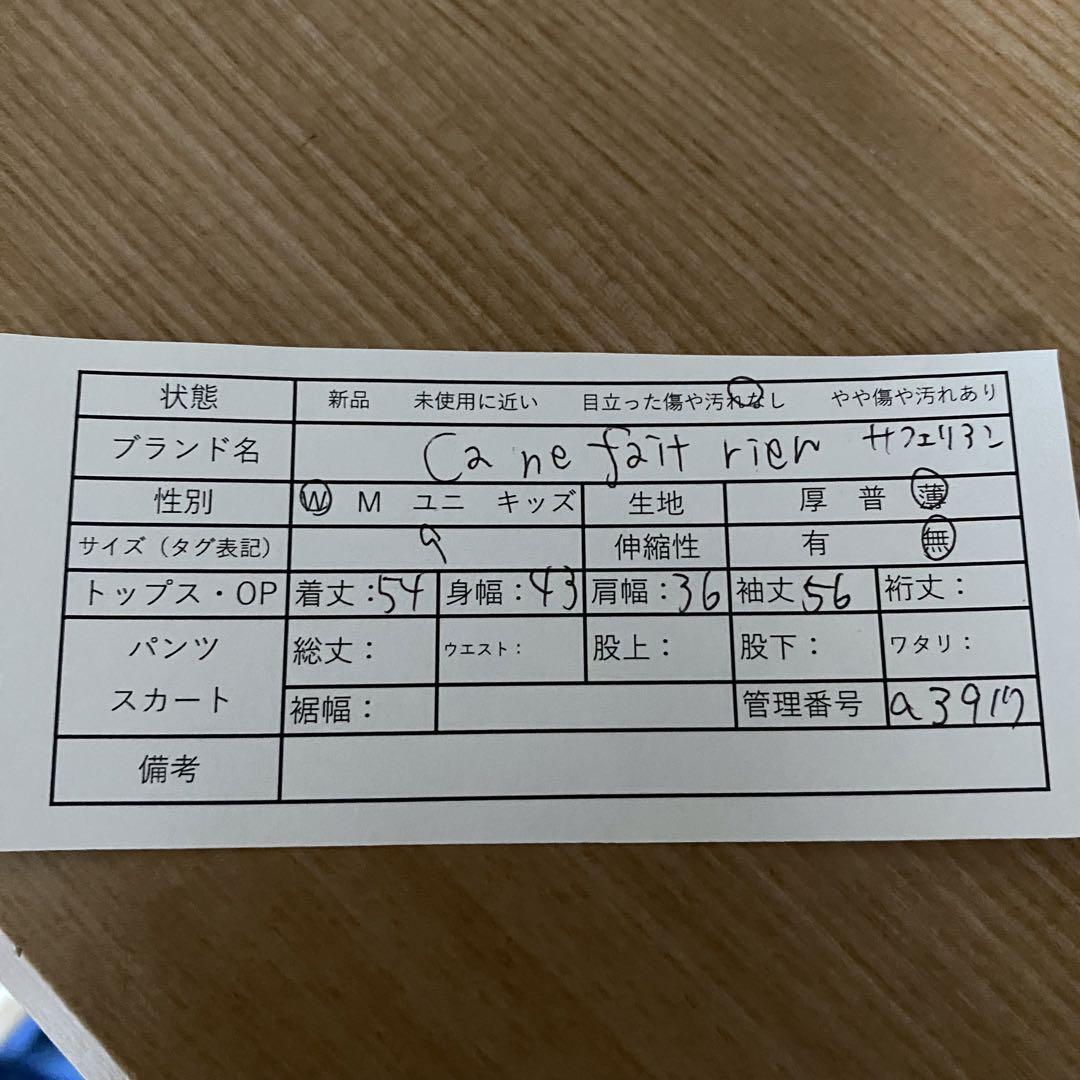 状態 新品 未使用に近い 目立った傷や汚れなし やや傷や汚れあり
ブランド名 Ca ne fait rien サフェリアン
性別 W M ユニ キッズ 生地 厚 普 薄
サイズ（タグ表記） 9 伸縮性 有 無
トップス・OP 着丈：54 身幅：43 肩幅：36 袖丈 56 裄丈：
パンツ 総丈： ウエスト： 股上： 股下： ワタリ：
スカート 裾幅： 管理番号 a3917
備考